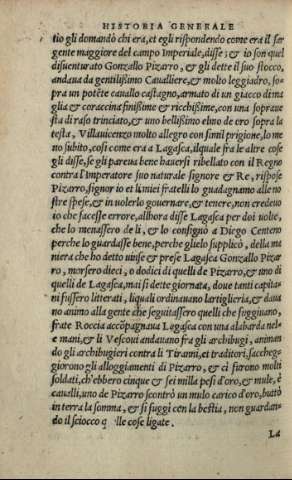 HISTORIA GENERALE
tio gli domandò chi era, et egli rispondendo come era il ser
gente maggiore del campo Imperiale, disse; & io son quel
disuenturato Gonzallo Pizarro, & gli dette il suo stocco,
andaua da gentilissimo Caualliere, & molto leggiadro, so-
pra un potẽte cauallo castagno, armato di un giacco di ma
glia & coraccina finissime & ricchissime, con una soprave
sta di raso trinciato, & uno bellissimo elmo de oro sopra la
testa, Villauicenzo molto allegro con simil prigione, lo me
nò subito, così come era a Lagasca, ilquale fra le altre cose
gli disse, se gli pareua bene hauersi ribellato con il Regno
contra l'Imperatore suo naturale signore & Re, rispose
Pizarro, signor io et li miei fratelli lo guadagnamo alle no
stre spese, & in uolerlo gouernare, & tenere, non credeuo
io che facesse errore, allhora disse Lagasca per doi uolte,
che lo menassero de li, & lo consignò a Diego Centeno
perche lo guardasse bene, perche glielo supplicò, della ma
niera che ho detto uinse & prese Lagasca Gonzallo Pizar
ro, morsero dieci, o dodici di quelli de Pizarro, & uno di
quelli de Lagasca, mai si dette giornata, doue tanti capita-
ni fussero litterati, liquali ordinauano lartiglieria, & daua
no animo alla gente che seguitassero quelli che fuggiuano,
frate Roccia accõpagnaua Lagasca con una alabarda nel-
e mani, & li Vescoui andauano fra gli archibugi, animan
do gli archibugieri contra li Tiranni, et traditori, saccheg-
giorono gli alloggiamenti di Pizarro, & ci furono molti
soldati, ch'ebbero cinque & sei milla pesi d'oro, & mule, è
caualli, uno de Pizarro scontrò un mulo carico d'oro, buttò
in terra la somma, & si fuggì con la bestia, non guardan-
do il sciocco q lle cose ligate.
La